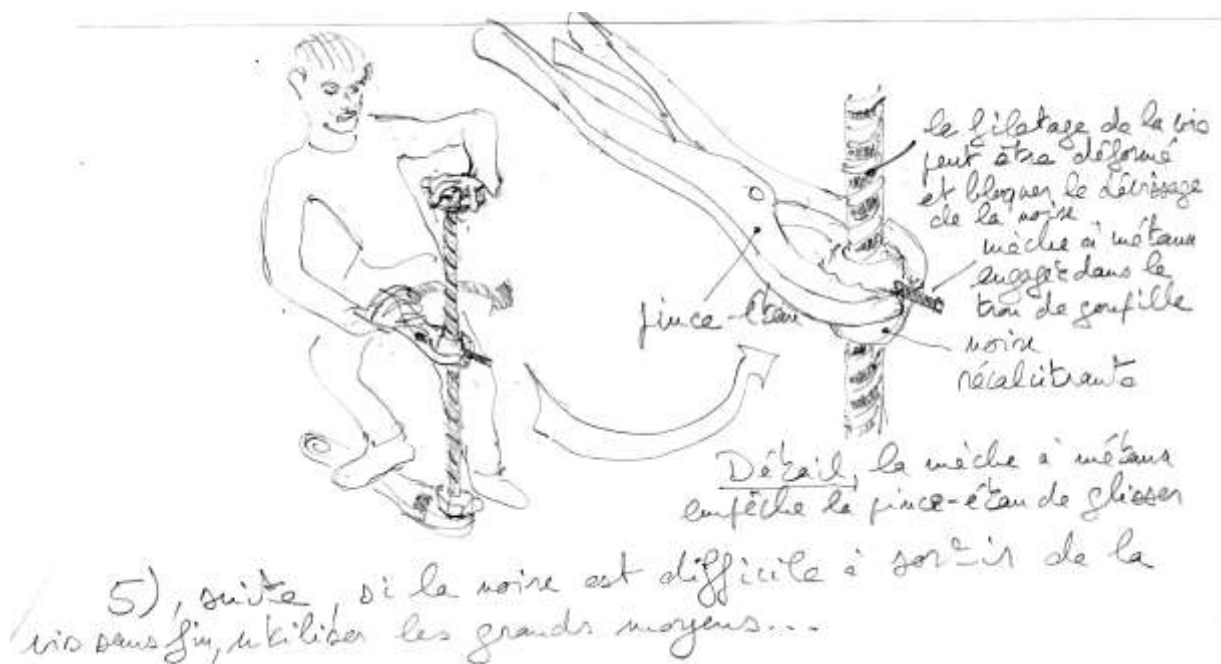 le filetage de la vis
peut être déformé
et bloquer le dévissage
de la noix
mèche à métaux
engagée dans le
trou de goupille
pince-étau
noix
récalcitrante
Détail, la mèche à métaux
empêche la pince-étau de glisser
5), suite, si la noix est difficile à sortir de la
vis sans fin, utiliser les grands moyens...